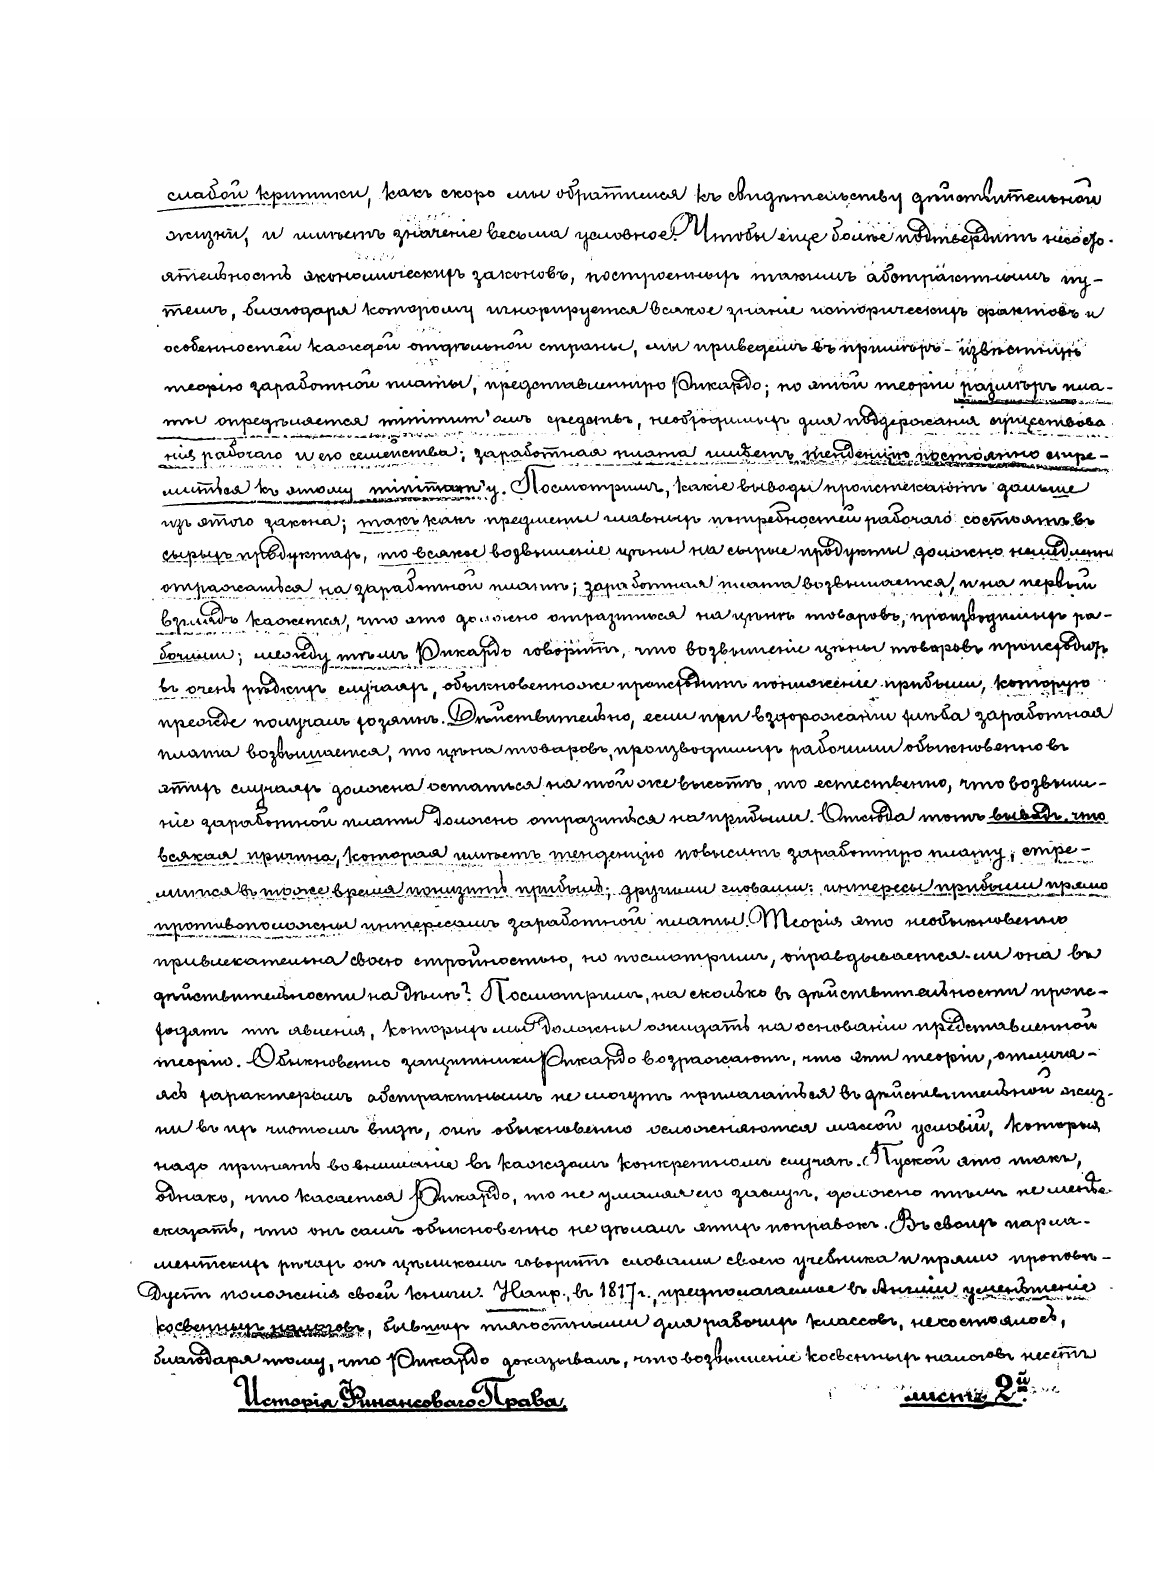 слабой критики, какъ скоро мы обратимся къ свидѣтельству дѣйствительной
жизни, и имѣетъ значеніе весьма условное. Чтобы еще болѣе подтвердить несосто-
ятельность экономическихъ законовъ, построенныхъ такимъ абстрактнымъ пу-
темъ, благодаря которому игнорируется всякое знаніе историческихъ фактовъ и
особенностей каждой отдѣльной страны, мы приведемъ въ примѣръ- извѣстную
теорію заработной платы, представленную Рикардо; по этой теоріи размѣръ пла-
ты опредѣляется minimum'амъ средствъ, необходимыхъ для поддержанія существова
нія рабочаго и его семейства; заработная плата имѣетъ тенденцію постоянно стре-
миться къ этому minimum'у. Посмотримъ, какіе выводы проистекаютъ дальше
изъ этого закона; такъ какъ предметы главныхъ потребностей рабочаго состоятъ въ
сырыхъ продуктахъ, то всякое возвышеніе цѣны на сырые продукты должно немедленно
отражаться на заработной платѣ; заработная плата возвышается, и на первый
взглядъ кажется, что это должно отразиться на цѣнѣ товаровъ, производимыхъ ра-
бочими; между тѣмъ Рикардо говоритъ, что возвышеніе цѣны товаровъ происходитъ
въ очень рѣдкихъ случаяхъ, обыкновенно же происходитъ пониженіе прибыли, которую
прежде получалъ хозяинъ. Дѣйствительно, если при вздорожаніи хлѣба заработная
плата возвышается, то цѣна товаровъ, производимыхъ рабочими обыкновенно въ
этихъ случаяхъ должна остаться на той же высотѣ, то естественно, что возвыше-
ніе заработной платы должно отразиться на прибыли. Отсюда тотъ выводъ, что
всякая причина, которая имѣетъ тенденцію повысить заработную плату, стре-
мится въ тоже время понизить прибыль; другими словами: интересы прибыли прямо
противоположны интересамъ заработной платы. Теорія эта необыкновенно
привлекательна своею стройностью, но посмотримъ, оправдывается-ли она въ
дѣйствительности на дѣлѣ? Посмотримъ, на сколько въ дѣйствительности проис-
ходятъ тѣ явленія, которыхъ мы должны ожидать на основаніи представленной
теоріи. Обыкновенно защитники Рикардо возражаютъ, что эти теоріи, отлича-
ясь характеромъ абстрактнымъ не могутъ прилагаться въ дѣйствительной жиз-
ни въ ихъ чистомъ видѣ, онѣ обыкновенно осложняются массой условій, которыя
надо принять во вниманіе въ каждомъ конкретномъ случаѣ. Пускай это такъ,
однако, что касается Рикардо, то не умаляя его заслугъ, должно тѣмъ не менѣе
сказать, что онъ самъ обыкновенно не дѣлалъ этихъ поправокъ. Въ своихъ парла-
ментскихъ рѣчахъ онъ цѣликомъ говоритъ словами своего учебника и прямо проповѣ-
дуетъ положенія своей книги. Напр., въ 1817 г., предполагаемое въ Англіи уменьшеніе
косвенныхъ налоговъ, бывшихъ тягостными для рабочихъ классовъ, не состоялось,
благодаря тому, что Рикардо доказывалъ, что возвышеніе косвенныхъ налоговъ несетъ
Исторія Финансоваго Права. листъ 2й